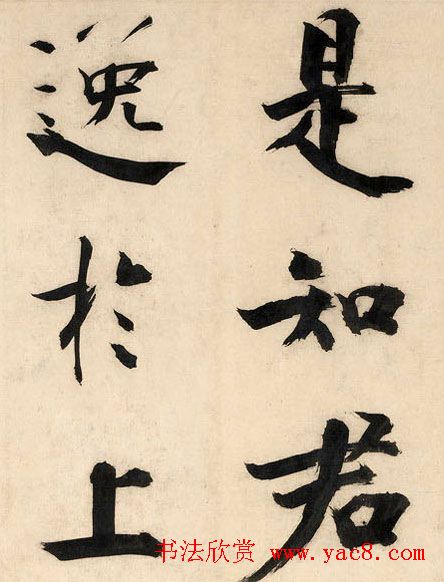 是知君
逸於上
书法欣赏 www.yac8.com